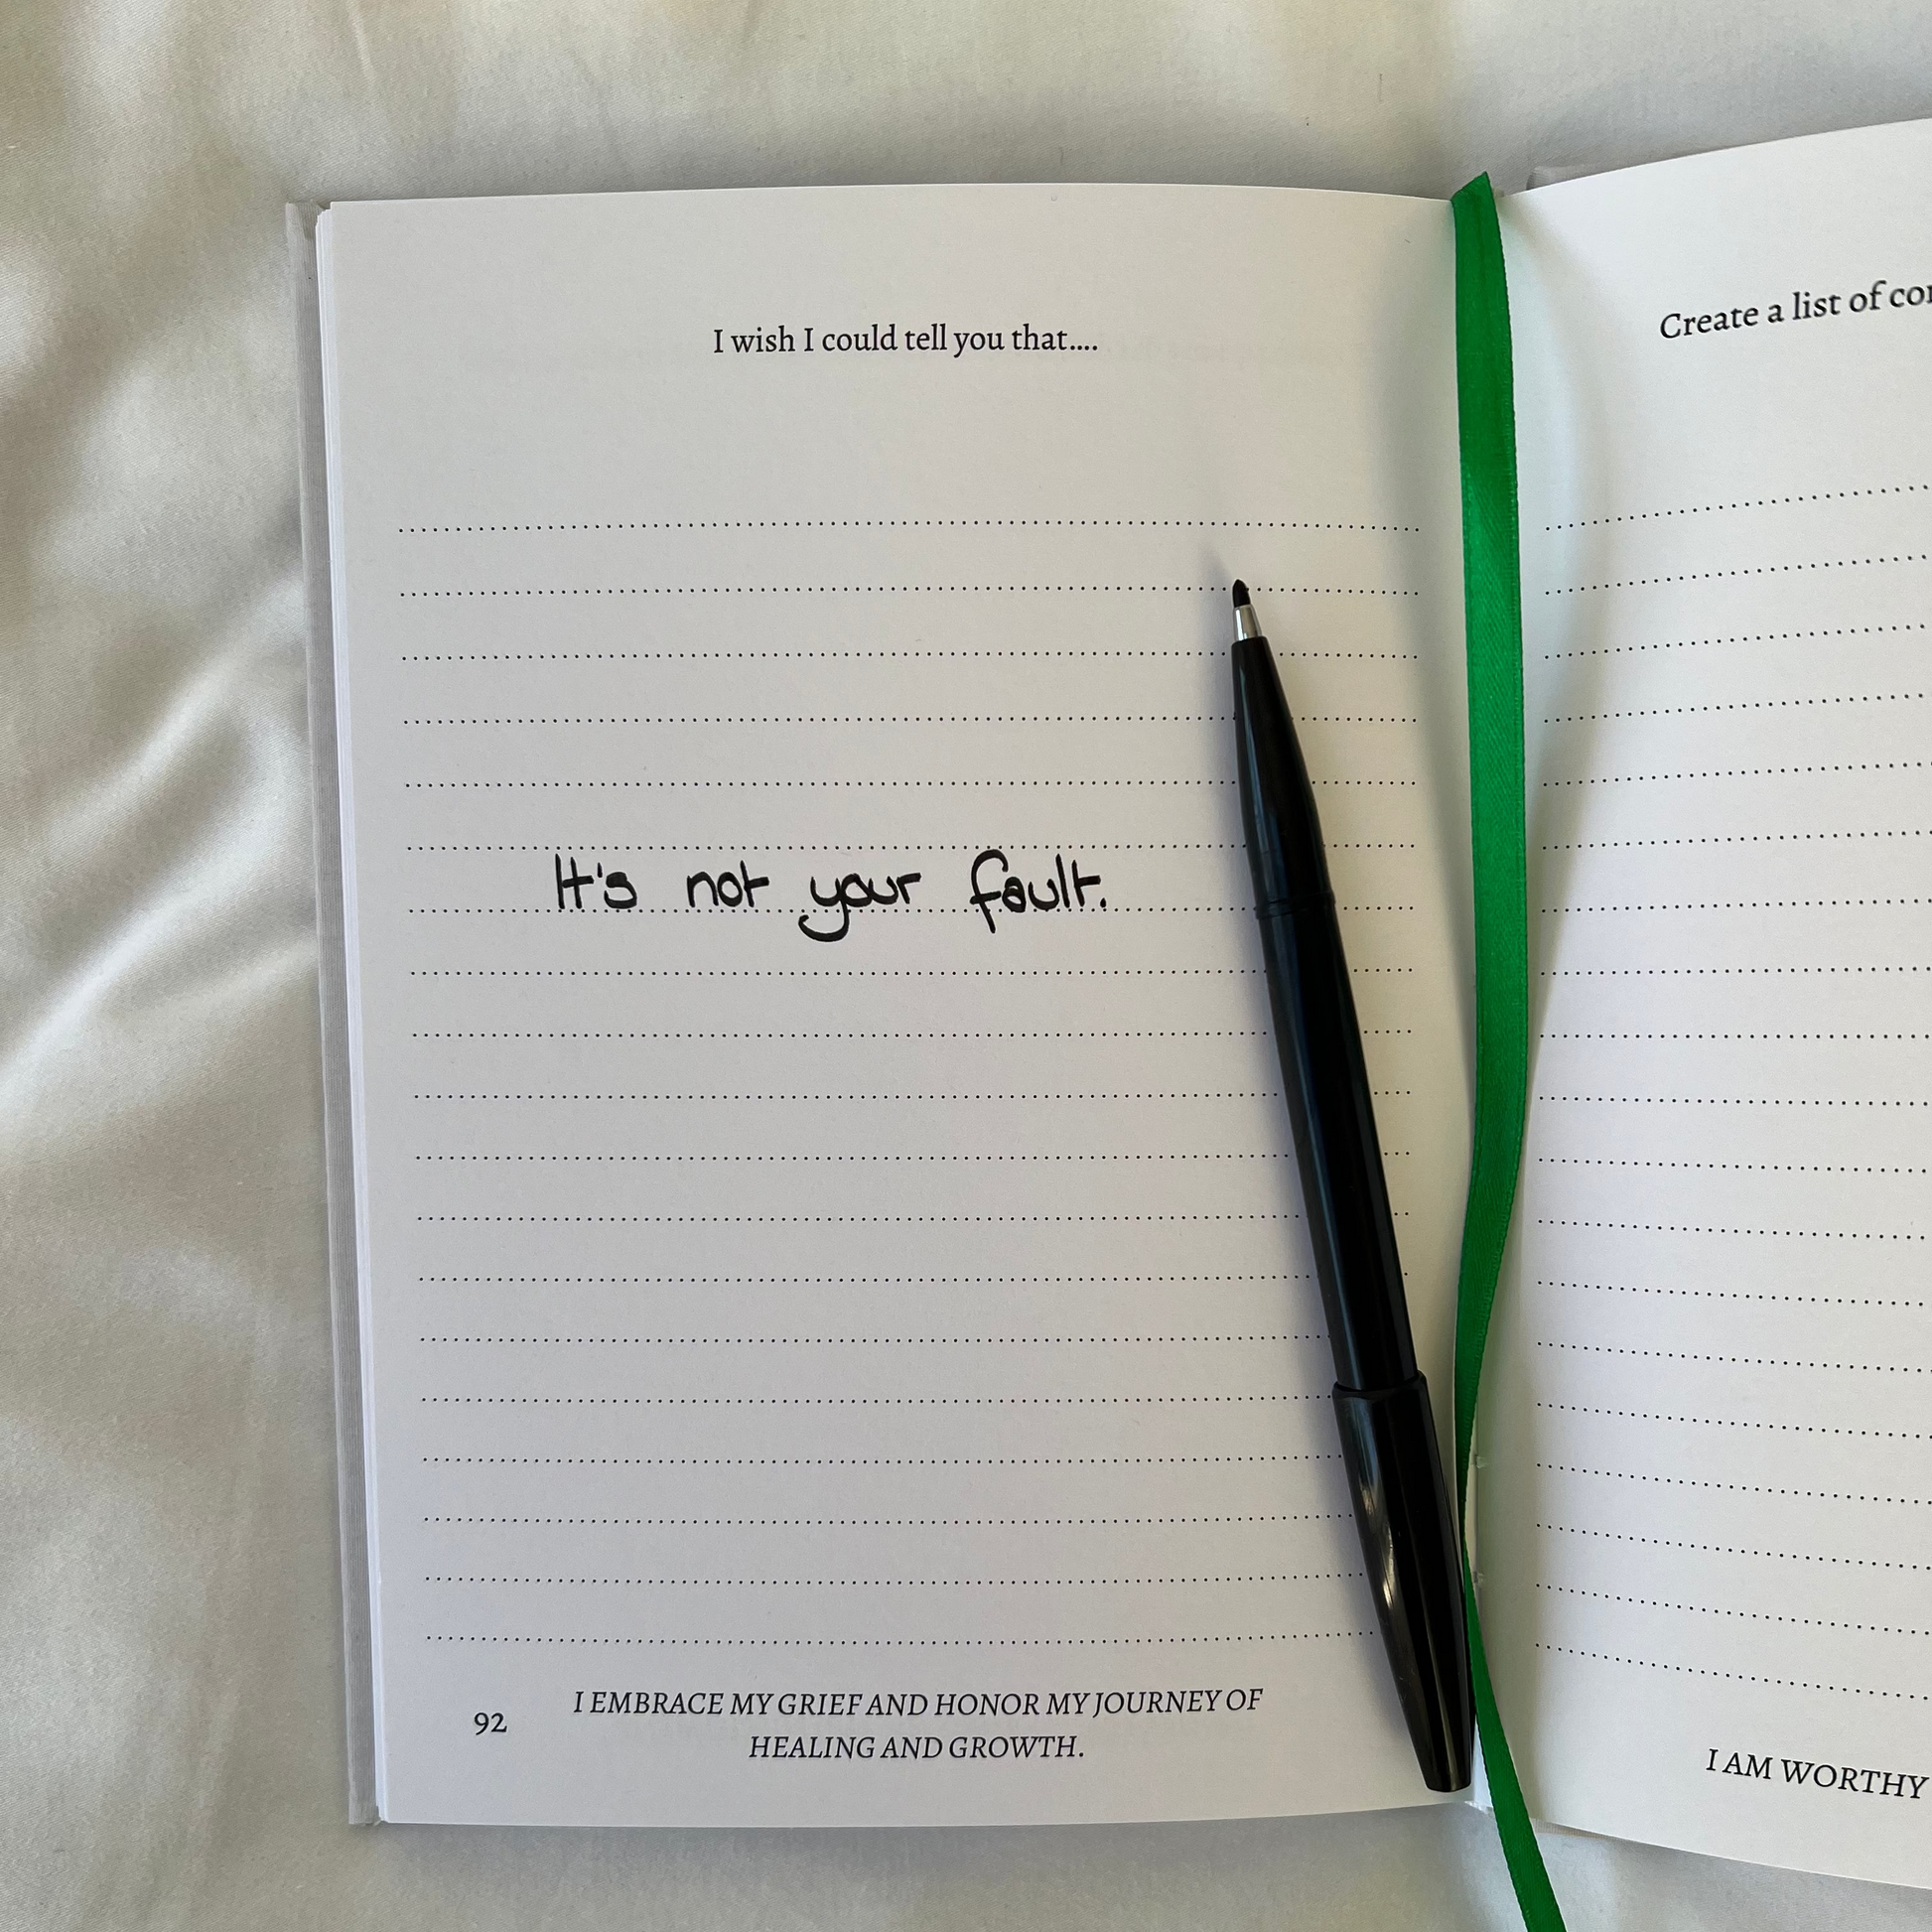 I wish I could tell you that....
It's not your fault.
92
I EMBRACE MY GRIEF AND HONOR MY JOURNEY OF
HEALING AND GROWTH.
Create a list of
I AM WORTHY